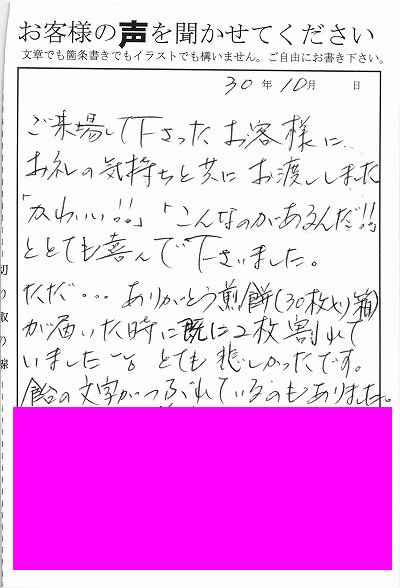 お客様の声を聞かせてください
文章でも箇条書きでもイラストでも構いません。ご自由にお書き下さい。
30年10月 日
ご来場して下さったお客様に、
お礼の気持ちと共にお渡ししました
「かわいい!!」「こんなのがあるんだ!!」
ととても喜んで下さいました。
ただ・・・ありがとう煎餅(30枚入り箱)
が届いた時に既に2枚割れて
いました とても悲しかったです。
飴の文字がつぶれているのもありました。
切り取り線